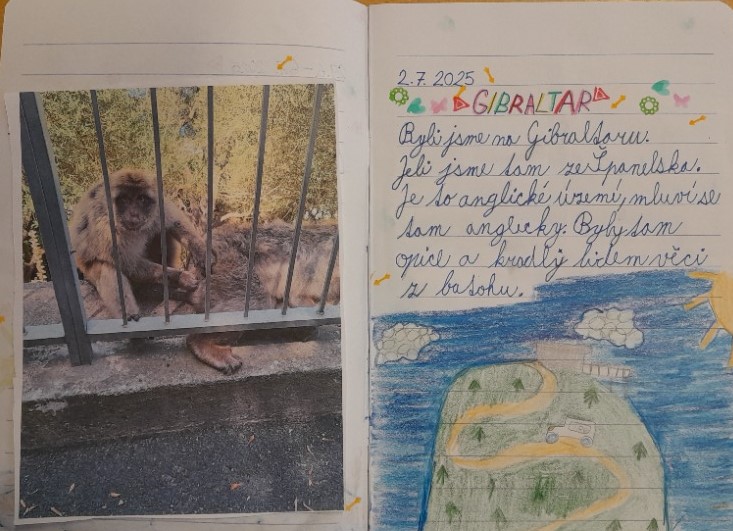 2.7. 2025
GIBRALTAR
Byli jsme na Gibraltaru.
Jeli jsme tam ze Španelska.
Je to anglické území, mluví se
tam anglicky. Byly tam
opice a kradly lidem věci
z batohu.